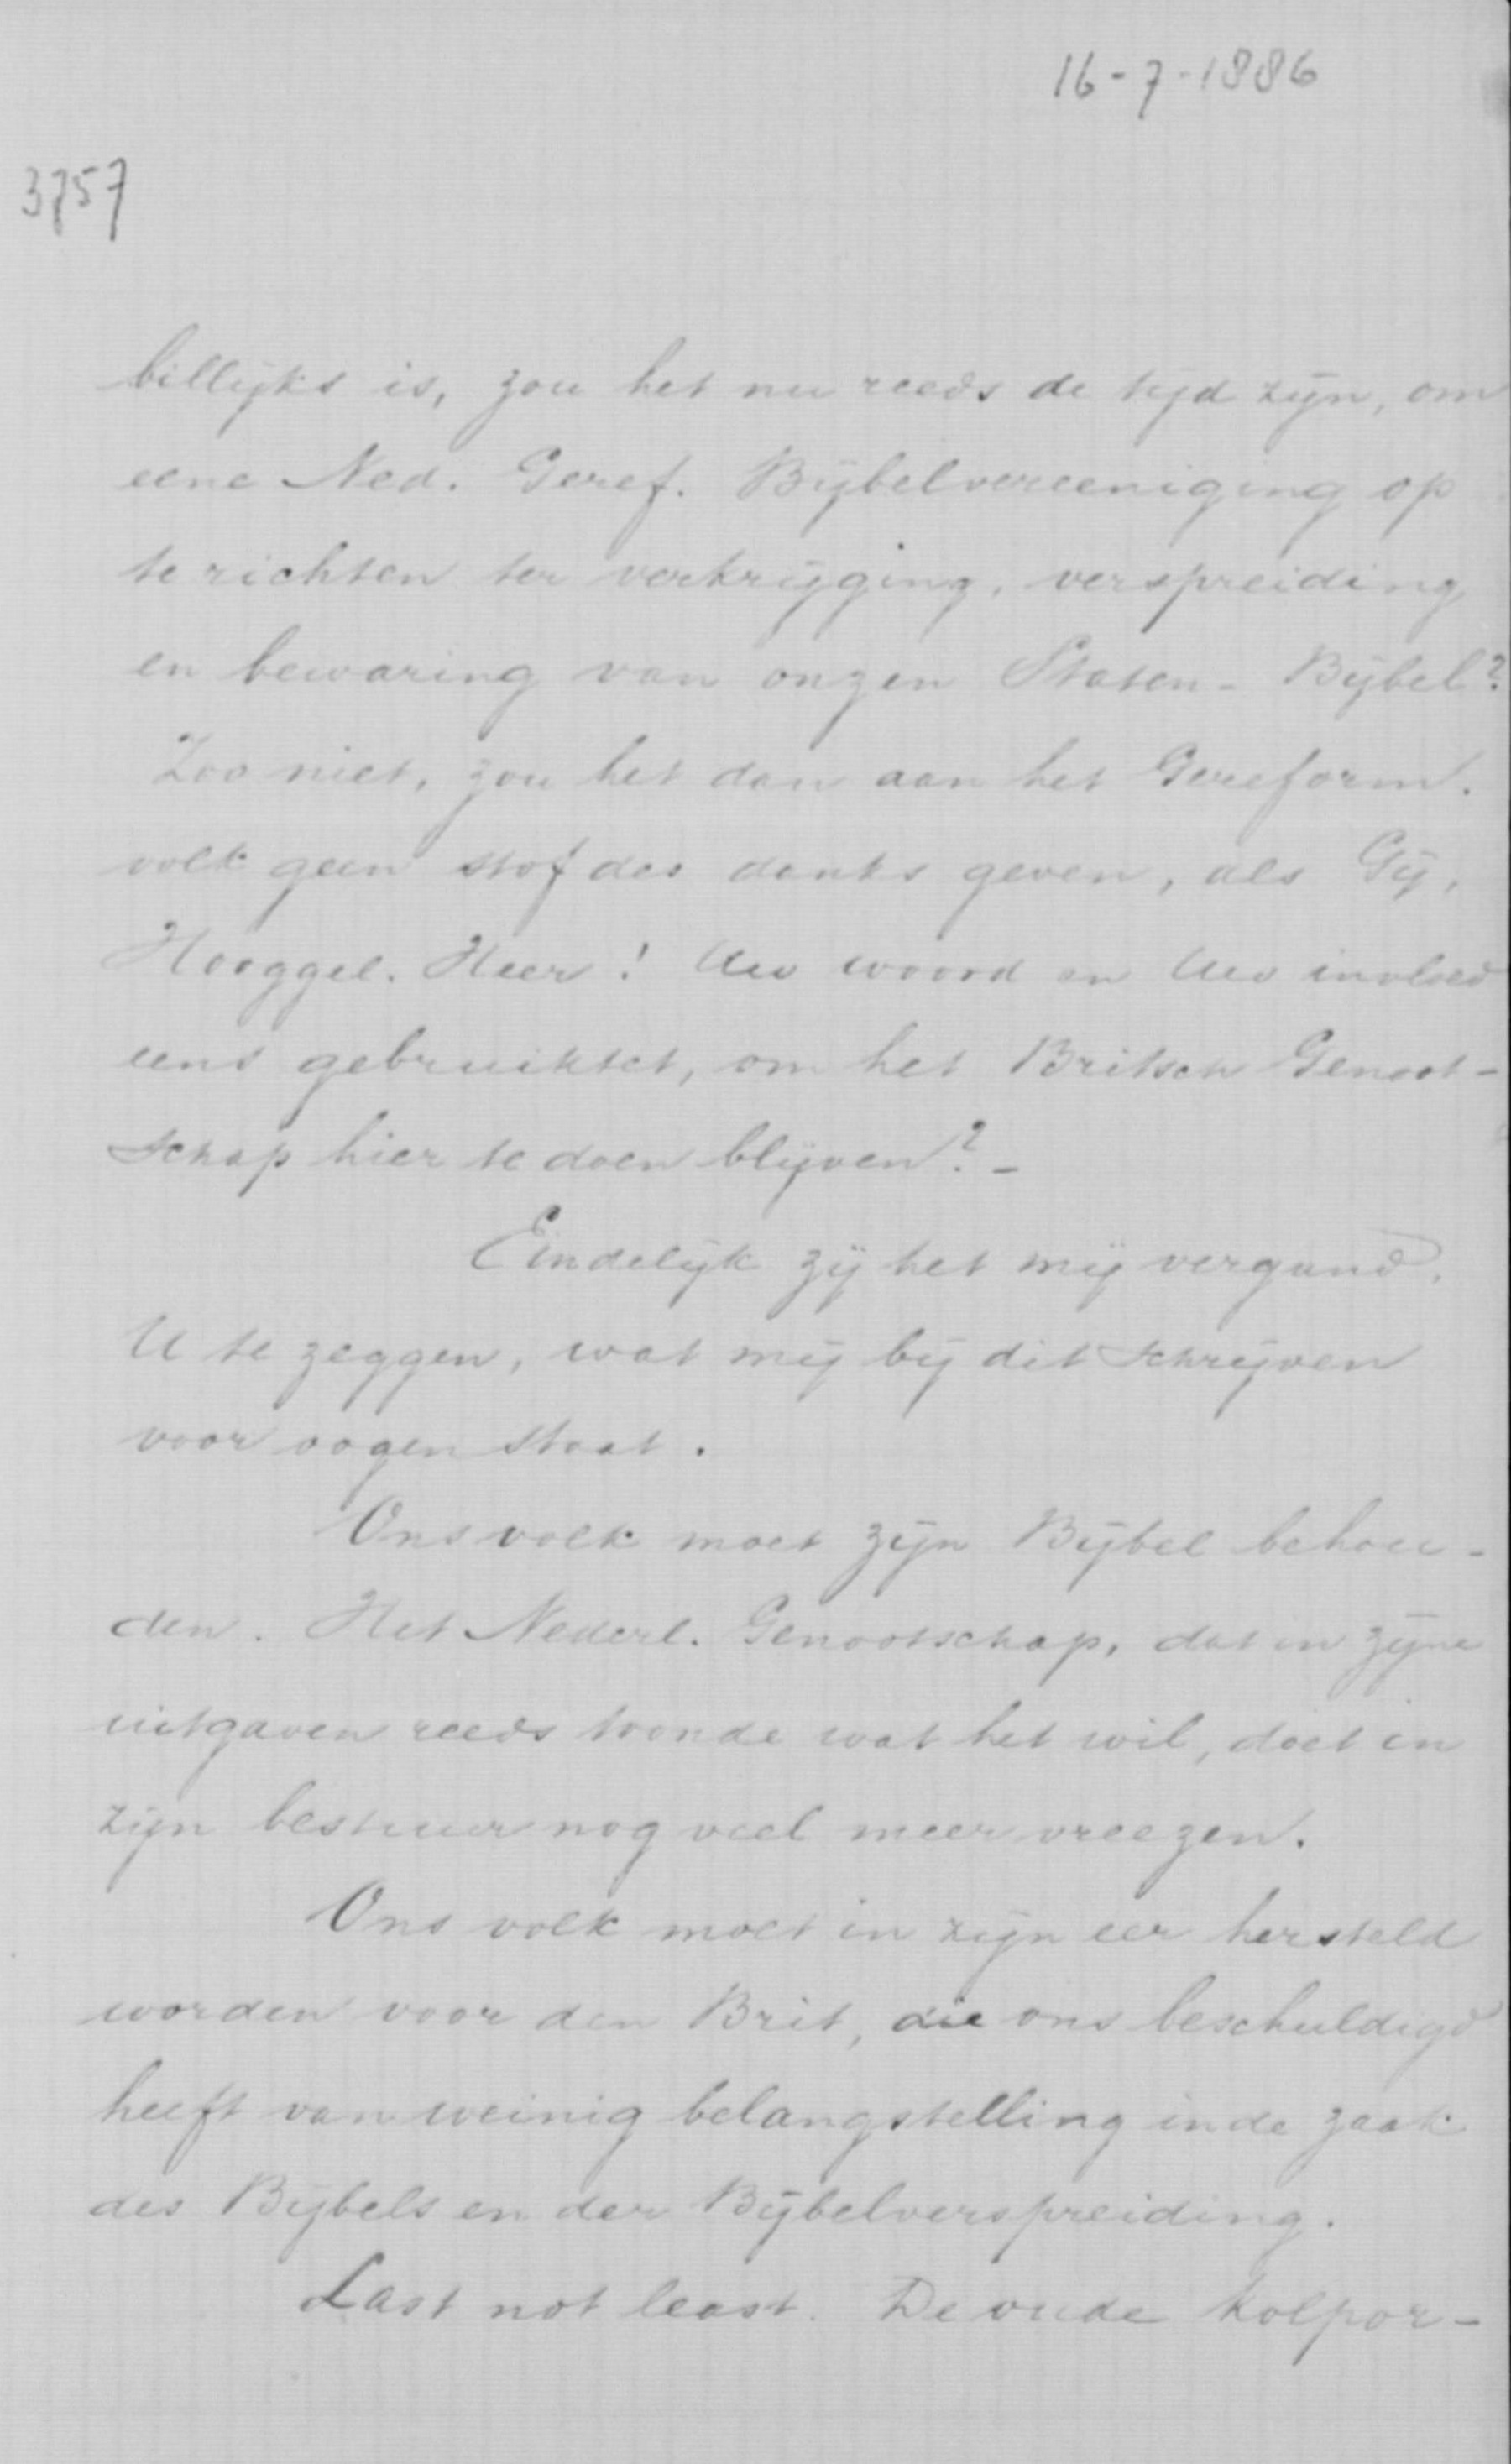 16-7-1886
3757
billijks is, zou het nu reeds de tijd zijn, om
eene Ned. Geref. Bijbelvereeniging op
te richten ter verkrijging, verspreiding
en bewaring van onzen Staten- Bijbel?
Zoo niet, zou het dan aan het Gereform.
volk geen stof des danks geven, als Gij,
Hooggel. Heer! Uw woord en Uw invloed
eens gebruiktet, om het Britsch Genoot-
schap hier te doen blijven?-
Eindelijk zij het mij vergund,
U te zeggen, wat mij bij dit schrijven
voor oogen staat.
Ons volk moet zijn Bijbel behou-
den. Het Nederl. Genootschap, dat in zijne
uitgaven reeds toonde wat het wil, doet in
zijn bestuur nog veel meer vreezen.
Ons volk moet in zijn eer hersteld
worden voor den Brit, die ons beschuldigd
heeft van weinig belangstelling in de zaak
des Bijbels en der Bijbelverspreiding.
Last not least. De oude kolpor-